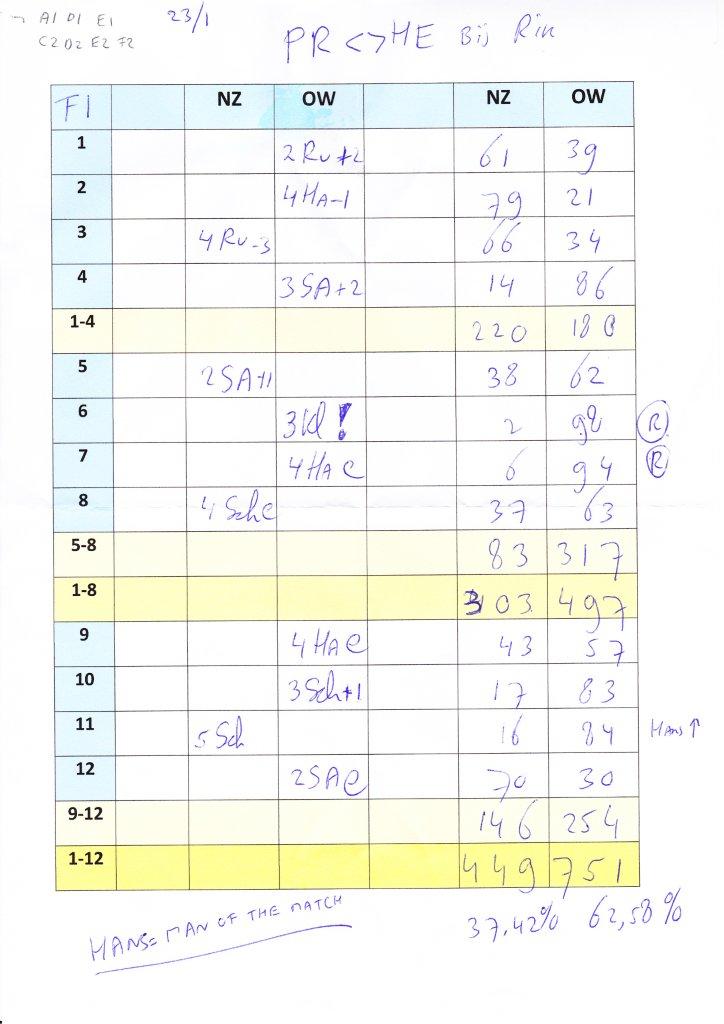 A1 D1 E1
23/1
C2 D2 E2 F2
PR <> HE Bij Rik
F1 NZ OW NZ OW
1 2Ru+2 61 39
2 4HA-1 79 21
3 4Ru-3 66 34
4 3SA+2 14 86
1-4 220 180
5 2SA+1 38 62
6 3Kl! 2 98 R
7 4HA C 6 94 R
8 4Sch C 37 63
5-8 83 317
1-8 303 497
9 4HA C 43 57
10 3Sch+1 17 83
11 5Sch 16 84 HANS ↑
12 2SA C 70 30
9-12 146 254
1-12 449 751
HANS= MAN OF THE MATCH
37,42% 62,58%